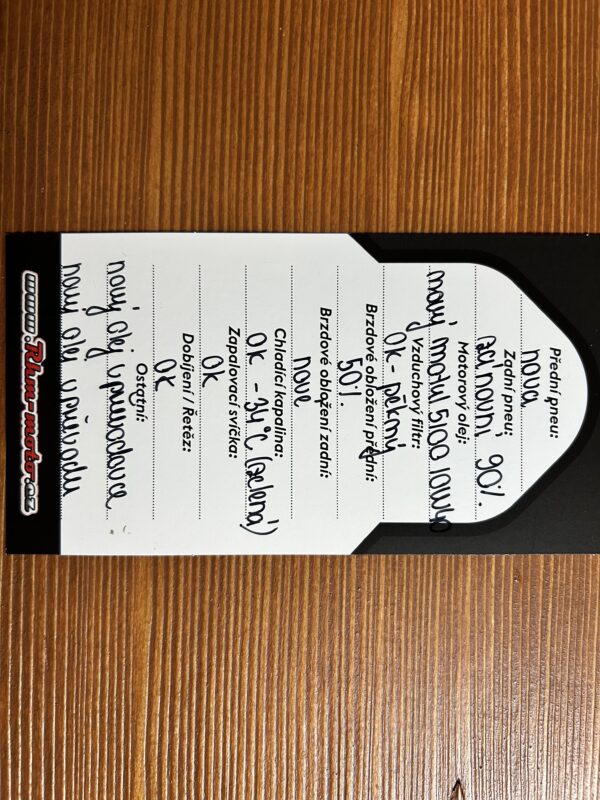 Přední pneu:
nová
Zadní pneu:
zánovní 90%
Motorový olej:
nový motul 5100 10W40
Vzduchový filtr:
OK - pěkný
Brzdové obložení přední:
50%
Brzdové obložení zadní:
nové
Chladící kapalina:
OK - 34°C (zelená)
Zapalovací svíčka:
OK
Dobíjení / Řetěz:
OK
Ostatní:
nový olej v převodovce
nový olej v převodu
www.Rhm-moto.cz